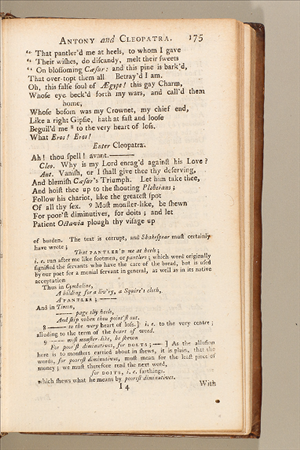 ANTONY and CLEOPATRA. 175
" That pantler'd me at heels, to whom I gave
" Their wishes, do discandy, melt their sweets
" On blossoming Cæsar: and this pine is bark'd,
That over-topt them all. Betray'd I am.
Oh, this false soul of Ægypt! this gay Charm,
Whose eye beck'd forth my wars, and call'd them
home;
Whose bosom was my Crownet, my chief end,
Like a right Gipsie, hath at fast and loose
Beguil'd me 8 to the very heart of loss.
What Eros! Eros!
Enter Cleopatra.
Ah! thou spell! avant.———
Cleo. Why is my Lord enrag'd against his Love?
Ant. Vanish, or I shall give thee thy deserving,
And blemish Cæsar's Triumph. Let him take thee,
And hoist thee up to the shouting Plebeians;
Follow his chariot, like the greatest spot
Of all thy sex. 9 Most monster-like, be shewn
For poor'st diminutives, for doits; and let
Patient Octavia plough thy visage up
of borden. The text is corrupt, and Shakespear must certainly
have wrote;
That PANTLER'D me at heels;
i. e. run after me like footmen, or pantlers; which word originally
signified the servants who have the care of the bread, but is used
by our poet for a menial servant in general, as well as in its native
acceptation
Thus in Cymbeline,
A hilding for a liv'ry, a Squire's cloth,
A PANTLER;———
And in Timon,
——— page thy heels,
And skip when thou point'st out.
8 ——— to the very heart of loss.] i. e. to the very centre;
alluding to the term of the heart of wood.
9 ——— most monster-like, be shewn
For poor'st diminutives, for DOLTS;—] As the allusion
here is to monsters carried about in shews, it is plain, that the
words, for poorest diminutives, must mean for the least piece of
money; we must therefore read the next word,
for DOITS, i. e. farthings.
which shews what he meant by poorest diminutives.
I 4 With